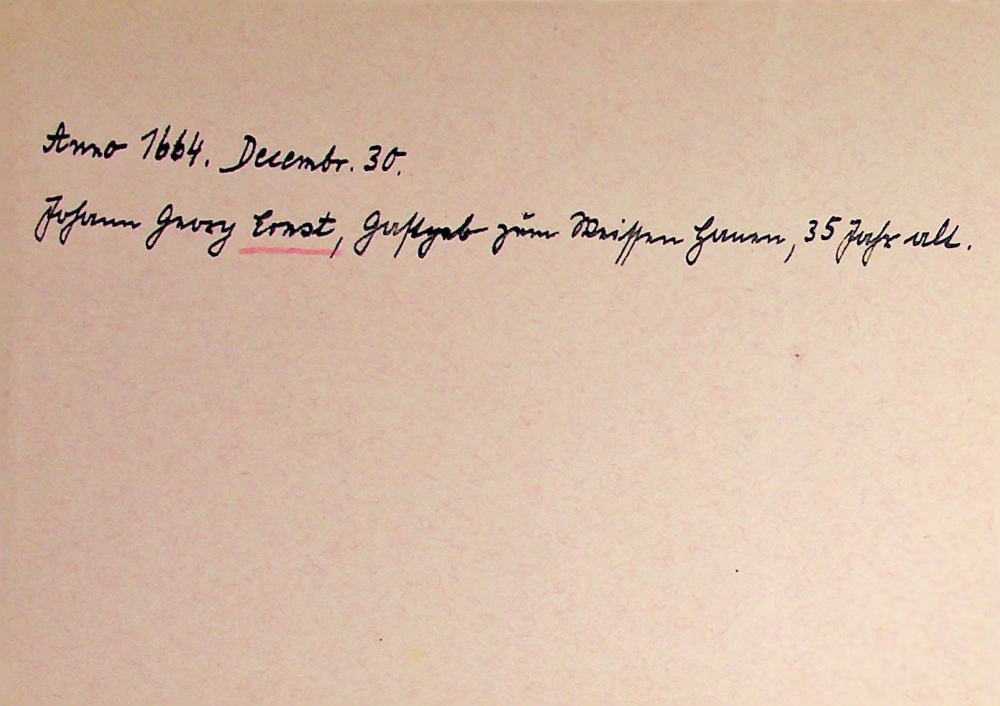 Anno 1664. Decembr. 30.
Johann Georg Ernst, Gastgeb zum Weissen Hanen, 35 Jahr alt.